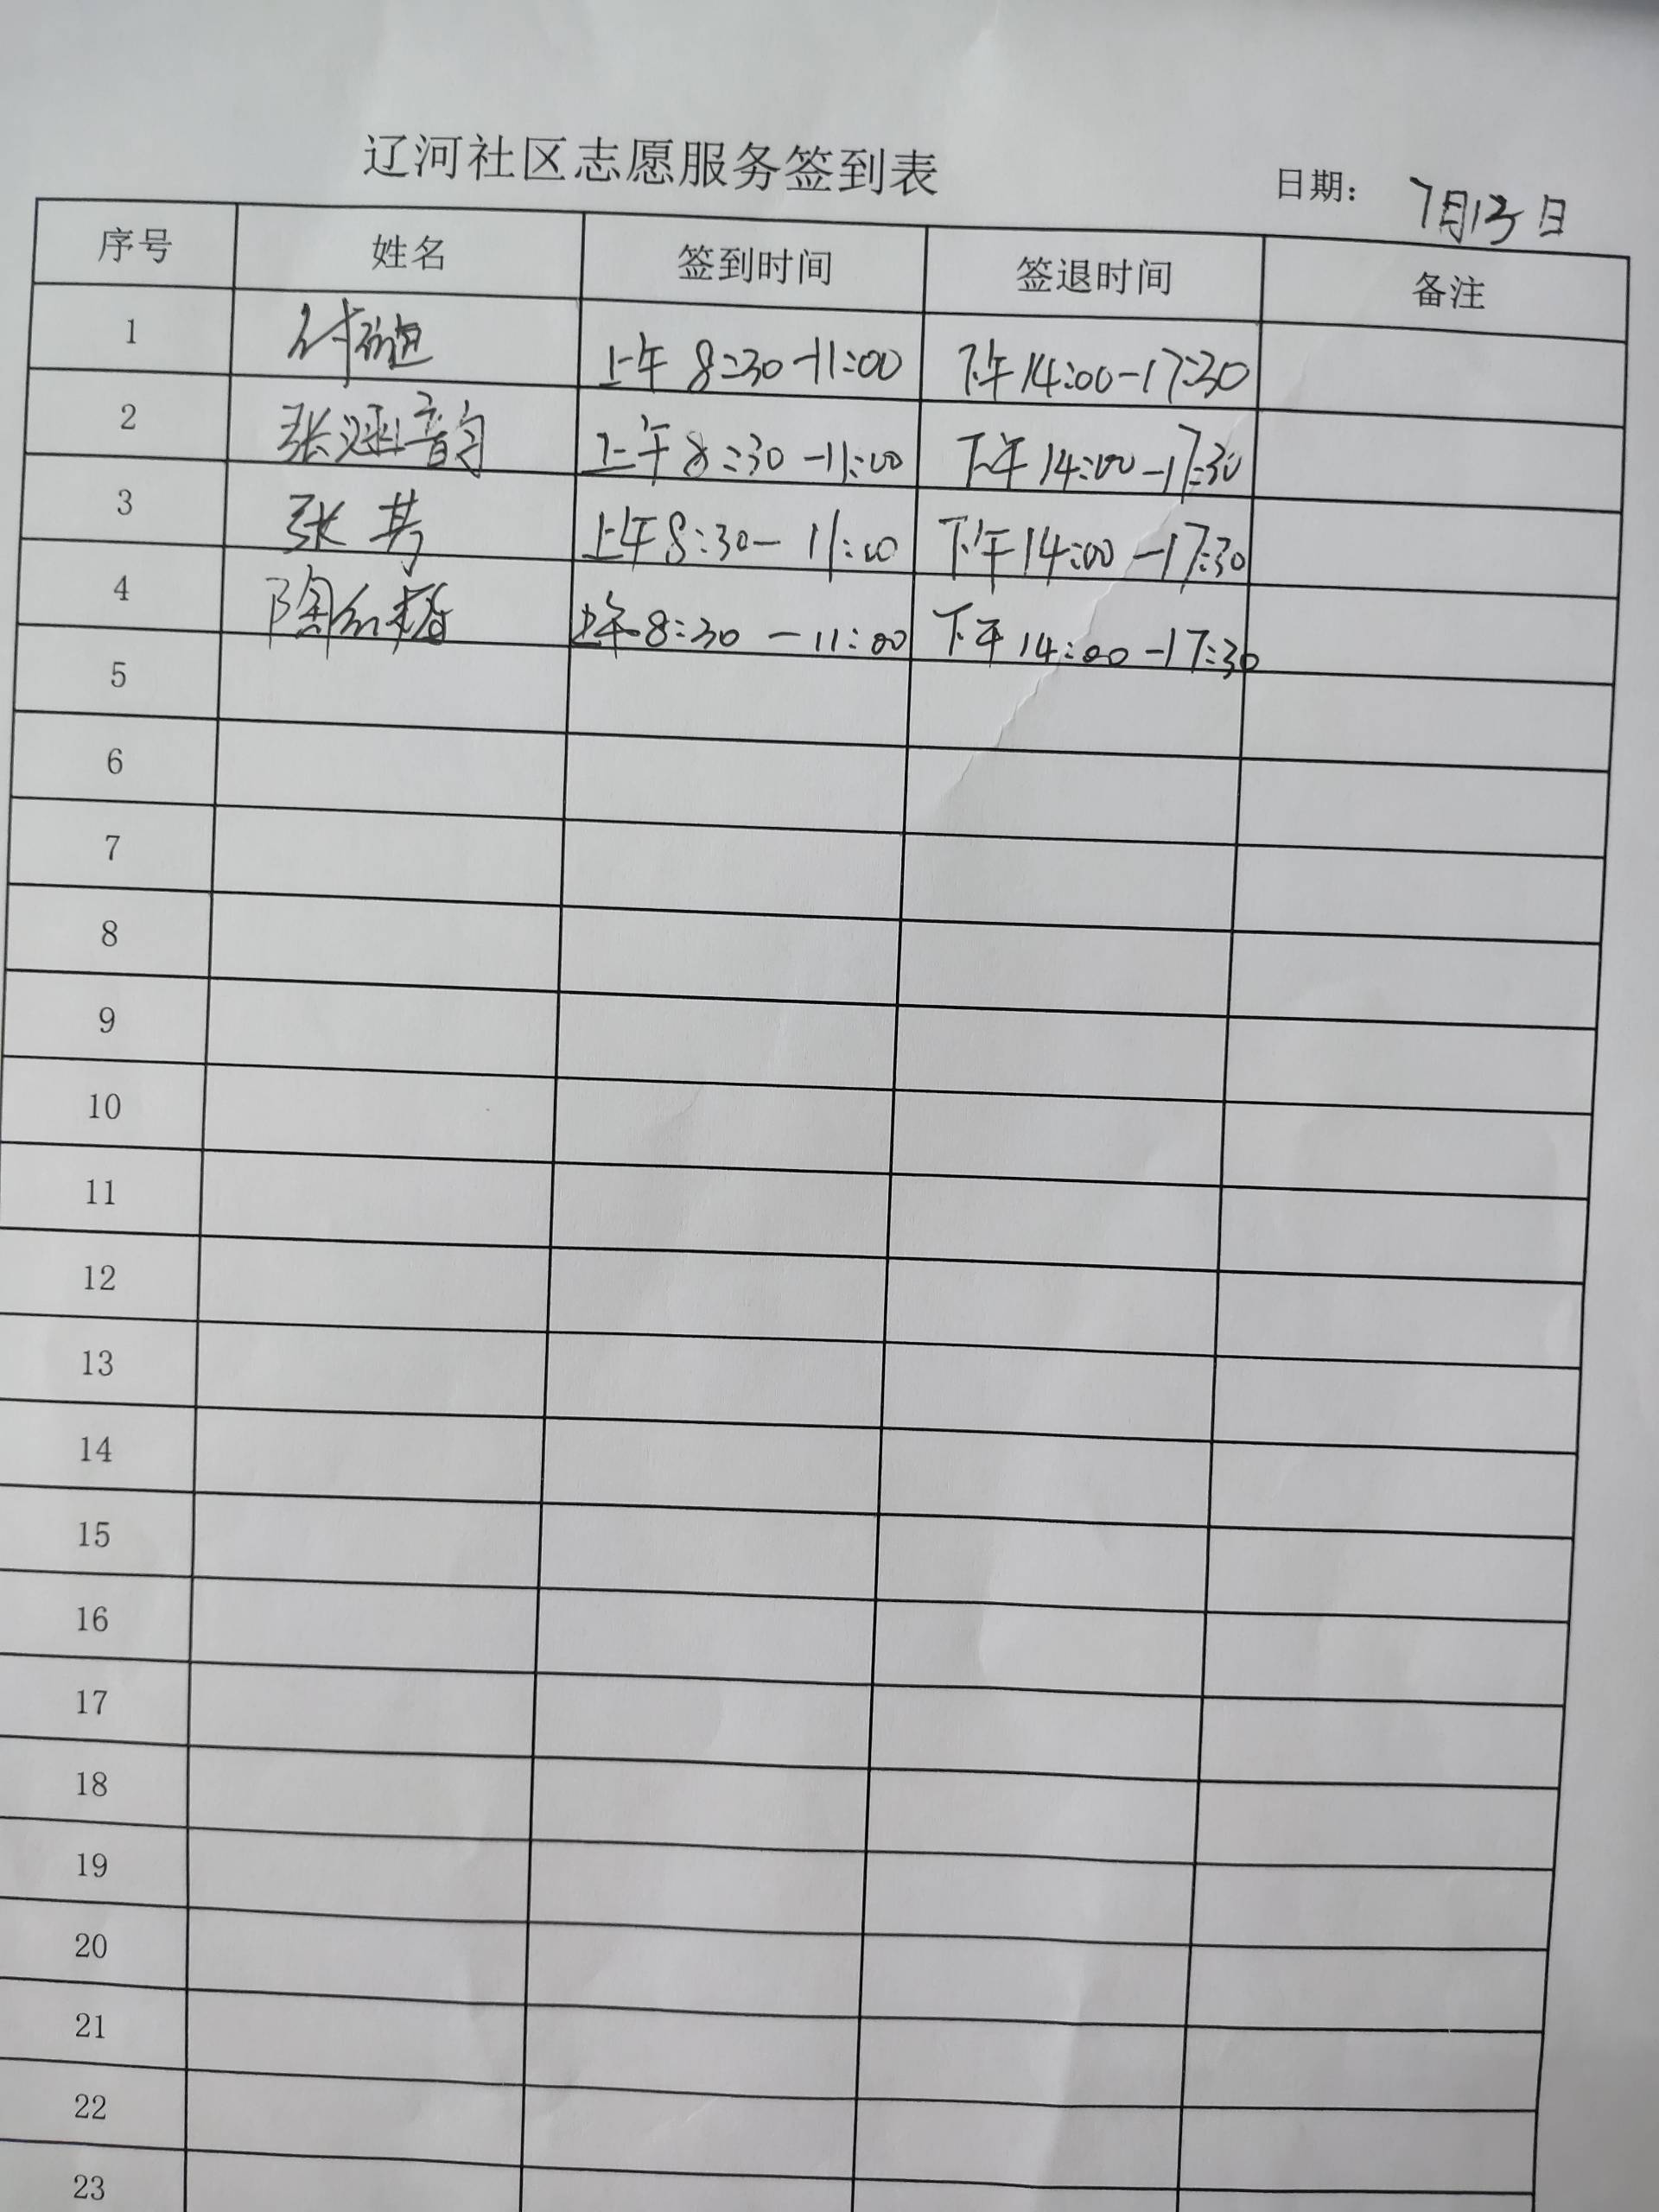 辽河社区志愿服务签到表 日期: 7月13日
序号 姓名 签到时间 签退时间 备注
1 付 上午 8:30-11:00 下午14:00-17:30
2 张涵韵 上午 8:30-11:00 下午 14:00-17:30
3 张其 上午8:30-11:00 下午14:00-17:30
4 陶 上午8:30-11:00 下午14:00-17:30
5
6
7
8
9
10
11
12
13
14
15
16
17
18
19
20
21
22
23